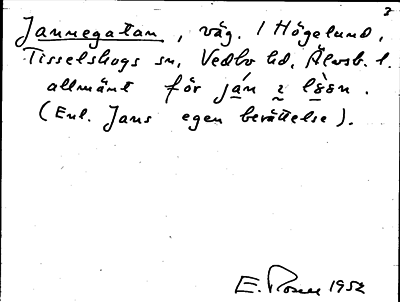 Jannegatan, väg. I Högelund,
Tisselskogs sn, Vedbo hd, Älvsb. l.
allmänt för ján 2 lssn.
(Enl. Jans egen berättelse).
E. Rosén 1952